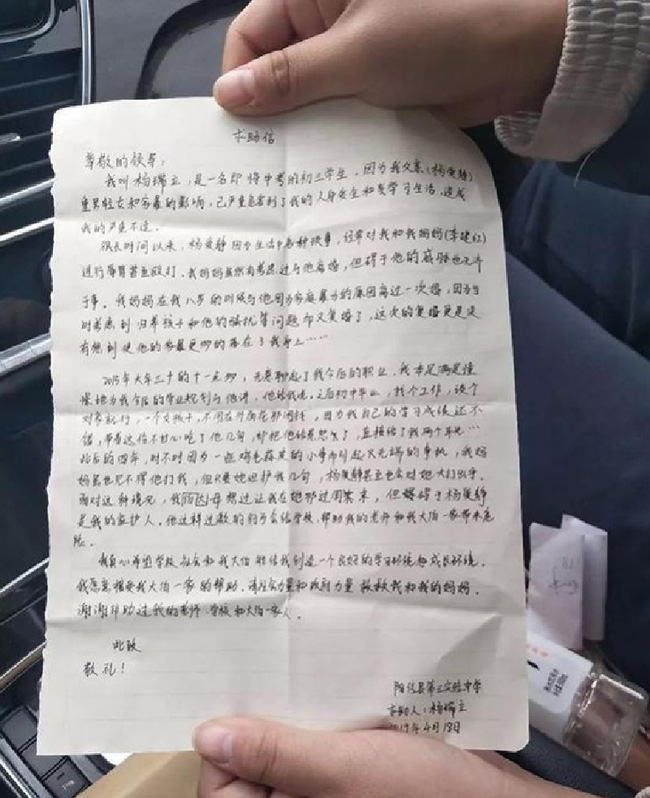 求助信
尊敬的领导：
我叫杨瑞立，是一名即将中考的初三学生，因为我父亲（杨爱静）
重男轻女和家暴的影响，已严重危害到了我的人身安全和学习生活，造成
我的严重不适。
很长时间以来，杨爱静因为生活中各种琐事，经常对我和我妈妈（李建红）
进行辱骂甚至殴打。我妈妈虽然有考虑过与他离婚，但碍于他的威胁也无济
于事。我妈妈在我八岁的时候与他因为家庭暴力的原因离过一次婚，因为当
时考虑到归养孩子和他的骚扰等问题而又复婚了，这次的复婚更是没
有想到使他的家暴更加的落在了我身上……
2015年大年三十的十一点多，无意聊起了我今后的职业，我本是满是憧
憬地为我今后的学业规划与他讲，他给我说，上后初中毕业，找个工作，谈个
对象就行，一个女孩子，不用在外面花那闲钱，因为我自己的学习成绩还不
错，带着这份不甘心吃了他几句，却把他给惹怒了，直接给了我两个耳光…
此后的四年，时不时因为一些鸡毛蒜皮的小事而引起又无端的事机，我妈
妈虽也见不得他打我，但只要她袒护我几句，杨爱静甚至也会对她大打出手。
面对这种境况，我 想过让我在她那过周末，但碍碍于杨爱静
是我的监护人，他这样过激的行为会给学校、帮助我的老师和我大伯一家带来危
险。
我真心希望学校、社会和我大伯能给我创造一个良好的学习环境和成长环境。
我愿意接受我大伯一家的帮助。请社会力量和政府力量救救我和我的妈妈。
谢谢帮助过我的老师、学校和大伯一家人。
此致
敬礼！
县第三实验中学
求助人：杨瑞立
2019年4月18日